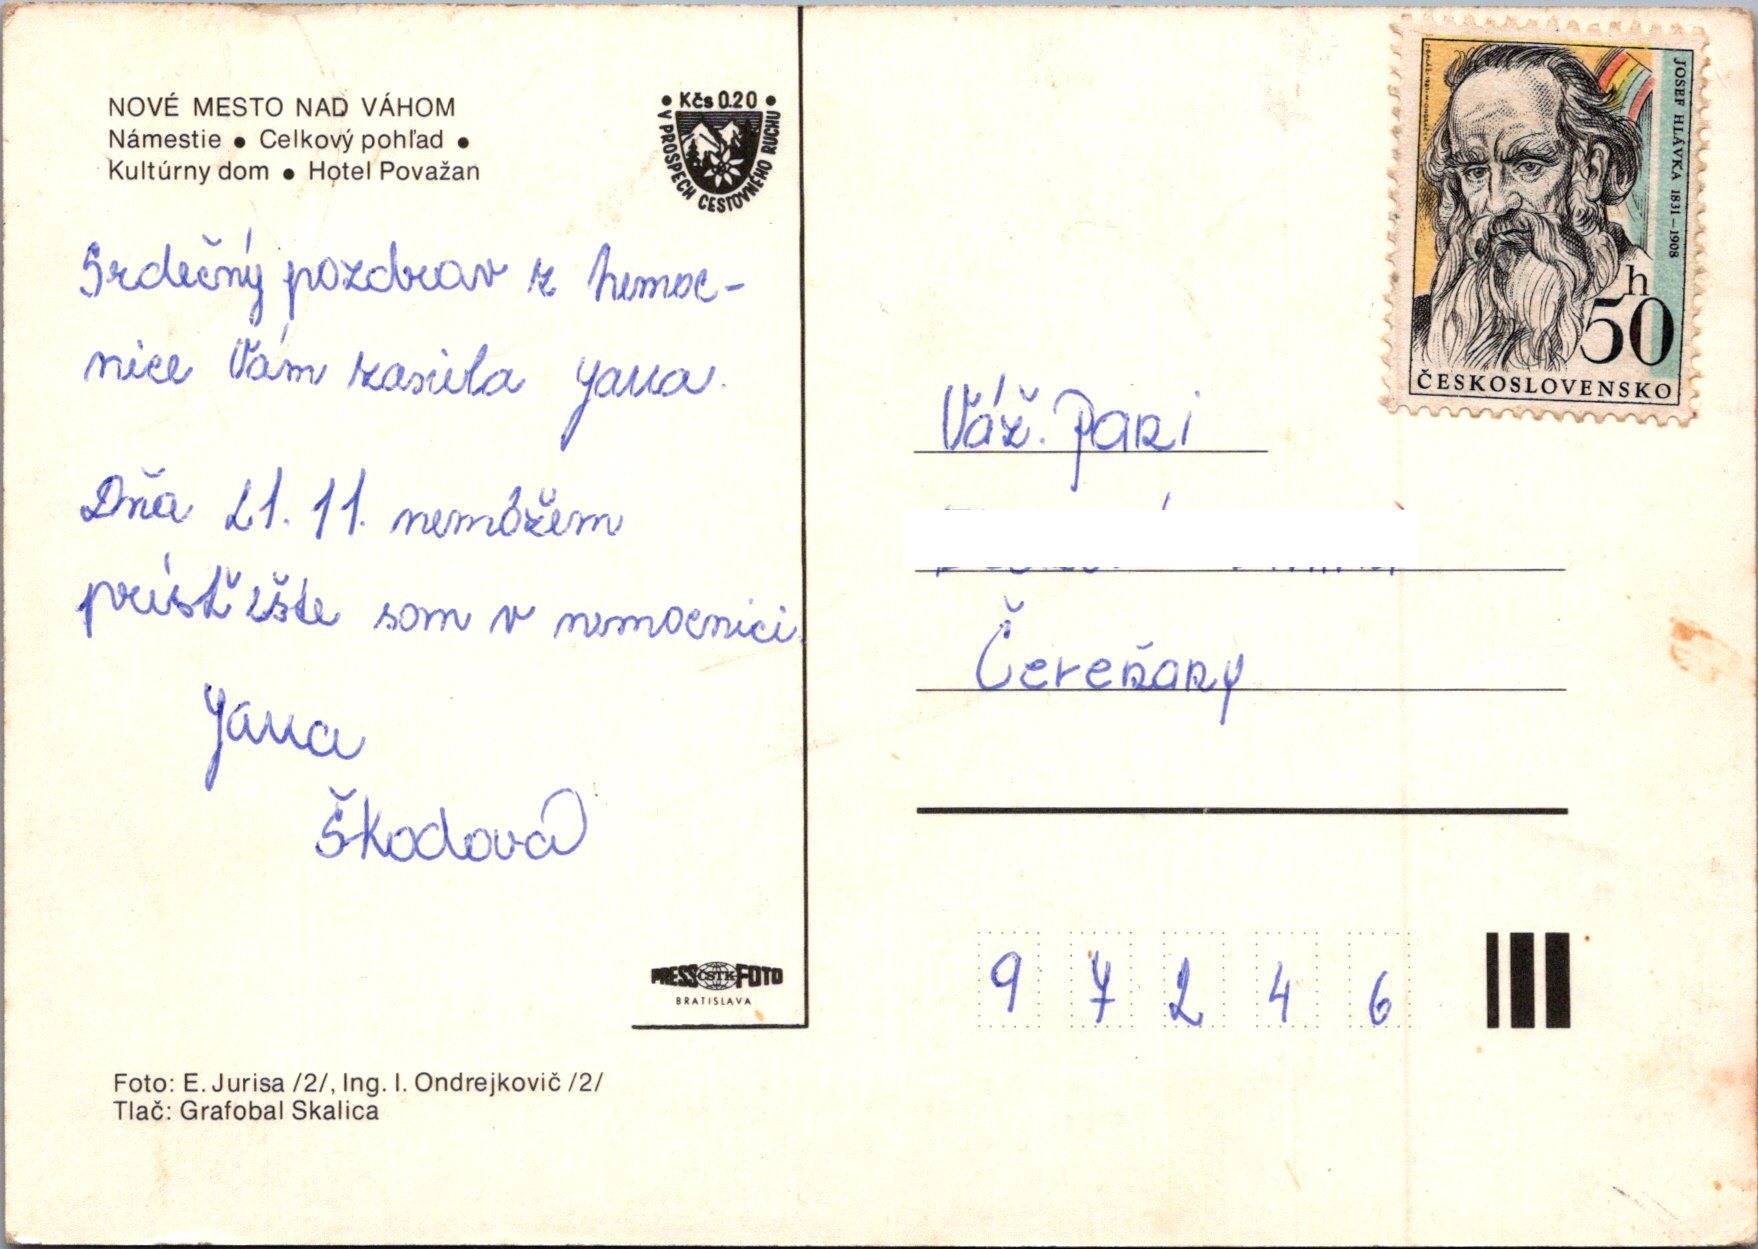 NOVÉ MESTO NAD VÁHOM
Námestie ● Celkový pohľad ●
Kultúrny dom ● Hotel Považan
● Kčs 0.20 ●
V PROSPECH CESTOVNÉHO RUCHU
Srdečný pozdrav z nemoc-
nice Vám zasiela Jana.
Dňa 21. 11. nemôžem
prísť ešte som v nemocnici.
Jana
Škodová
PRESS ČSTK FOTO
BRATISLAVA
Foto: E. Jurisa /2/, Ing. I. Ondrejkovič /2/
Tlač: Grafobal Skalica
JOSEF HLÁVKA 1831–1908
h
50
ČESKOSLOVENSKO
Váž. Pani
Čereňany
9 7 2 4 6